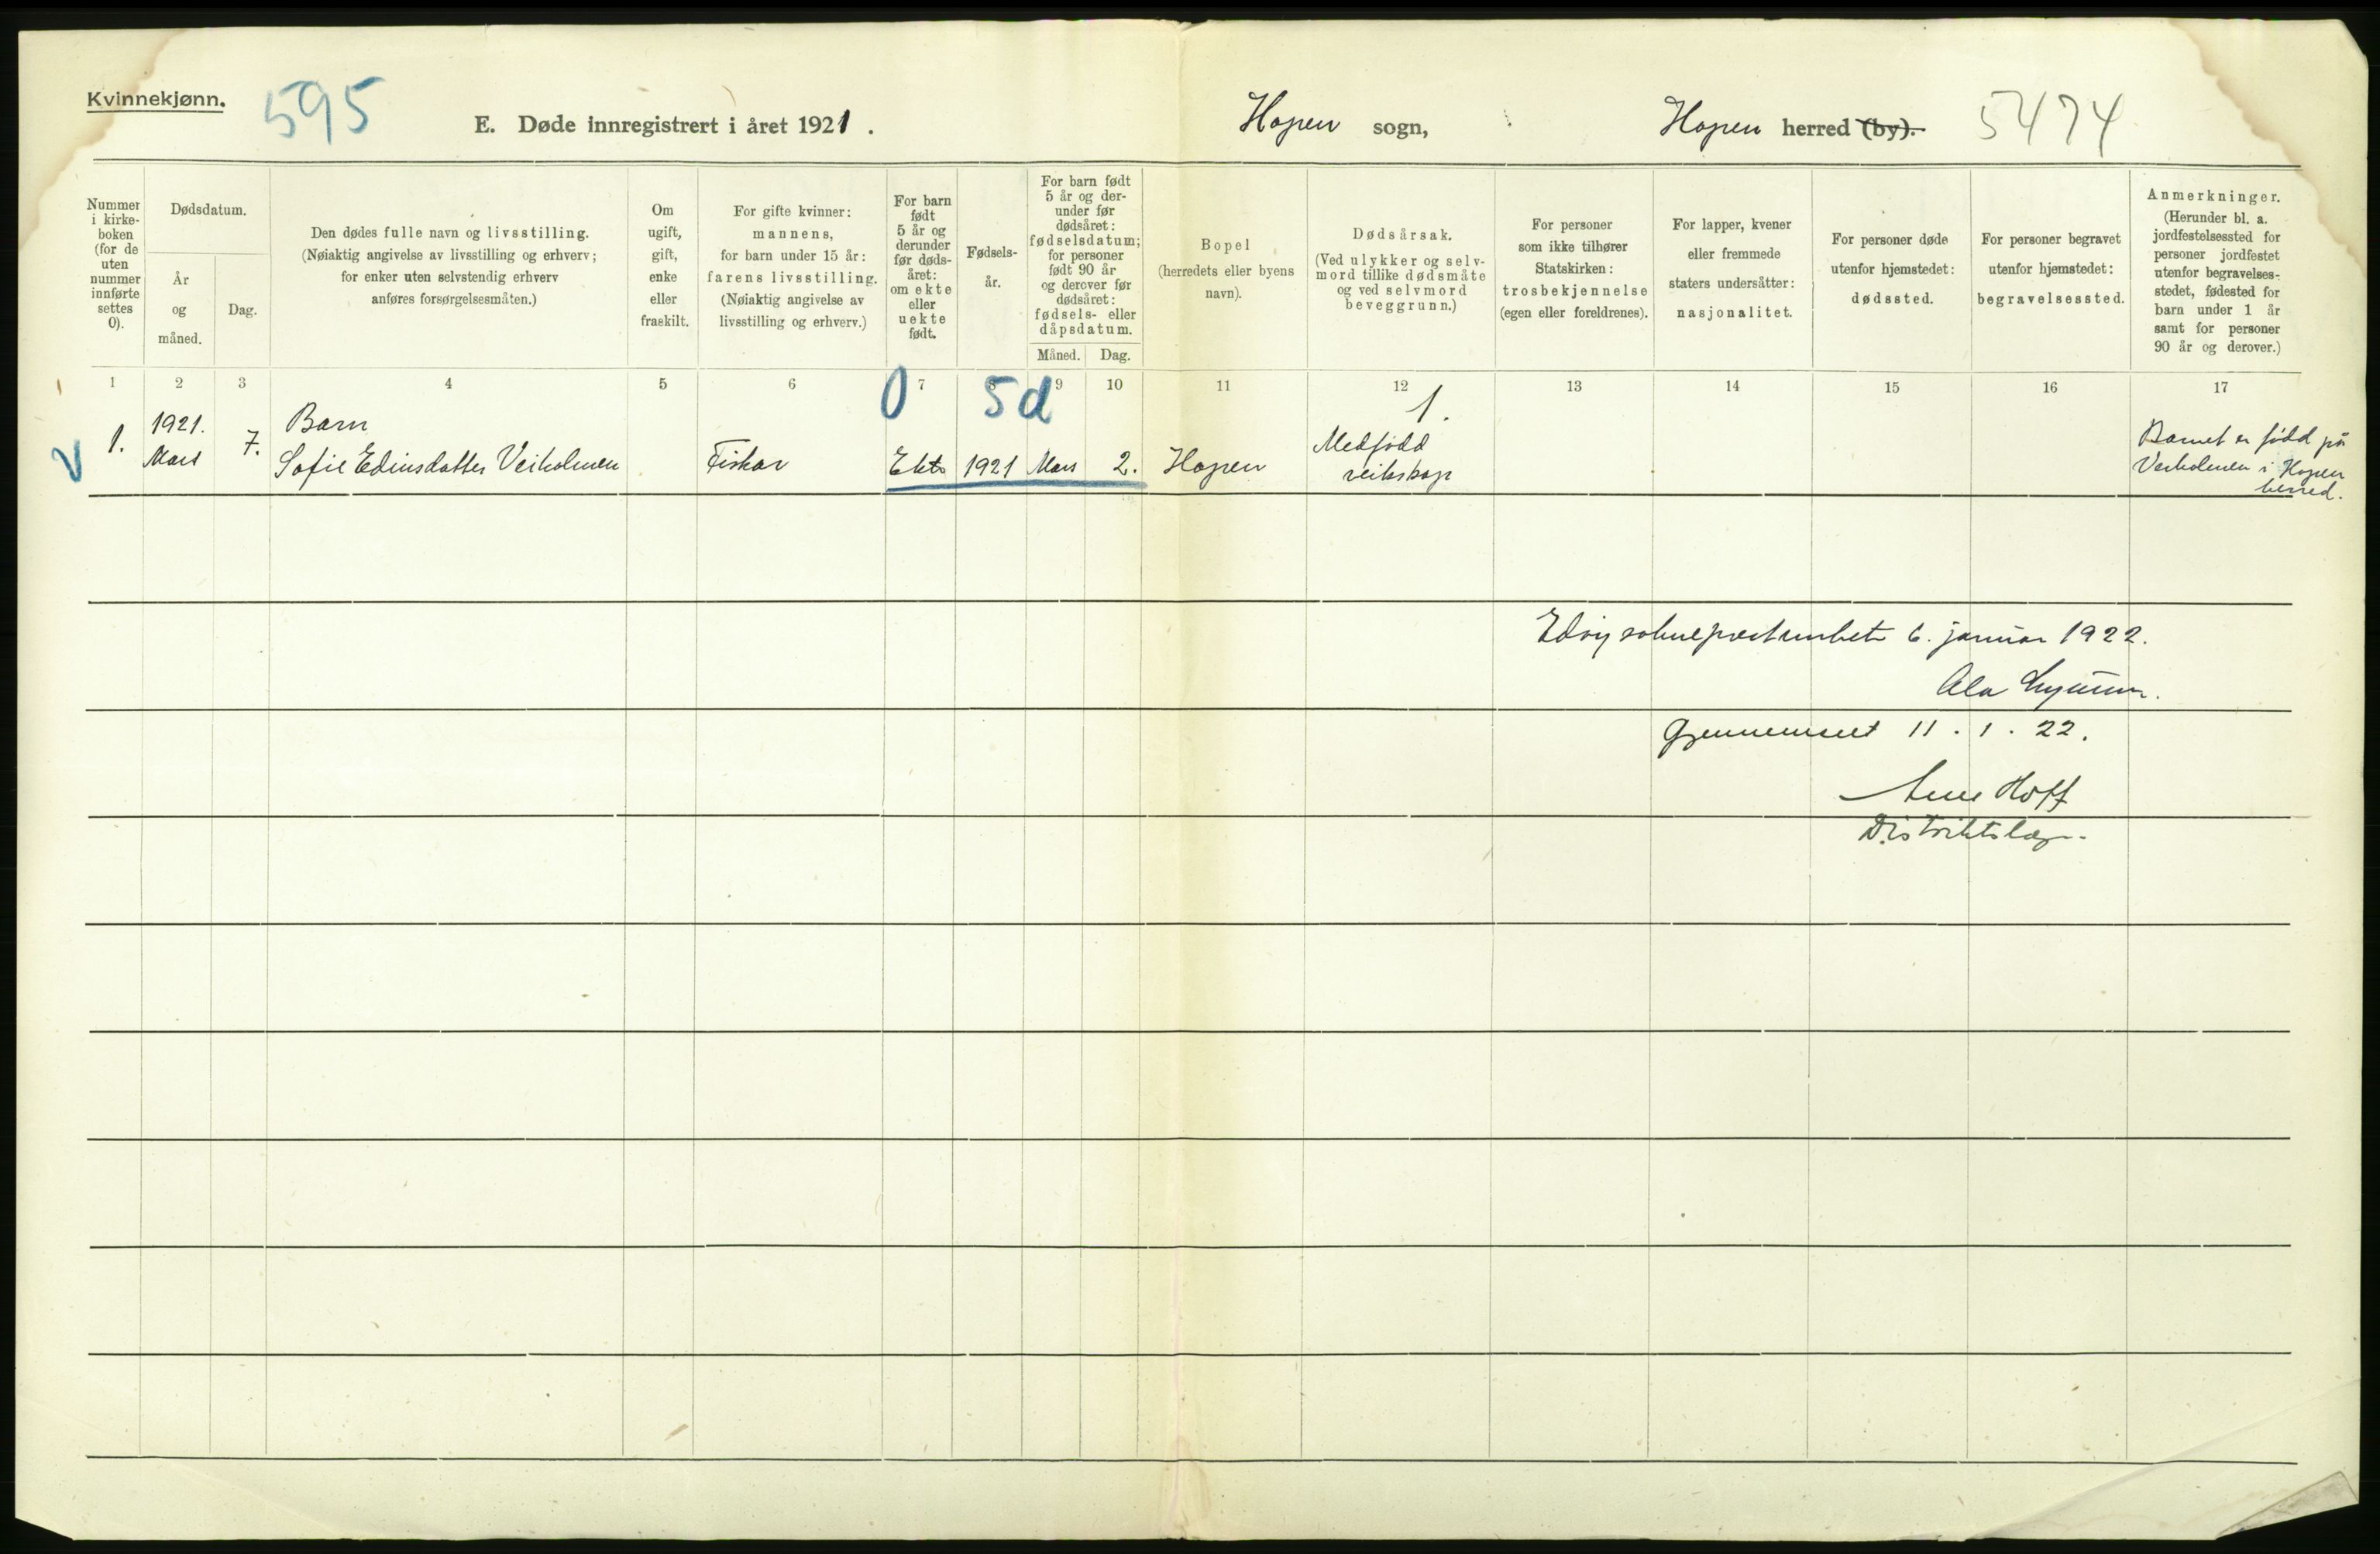 Kvinnekjønn.
595
E. Døde innregistrert i året 1921.
Hopen sogn,
Hopen herred (by).
5474
Nummer
i kirke-
boken
(for de
uten
nummer
innførte
settes
0).
Dødsdatum.
År
og
måned.
Dag.
Den dødes fulle navn og livsstilling.
(Nøiaktig angivelse av livsstilling og erhverv;
for enker uten selvstendig erhverv
anføres forsørgelsesmåten.)
Om
ugift,
gift,
enke
eller
fraskilt.
For gifte kvinner:
mannens,
for barn under 15 år:
farens livsstilling.
(Nøiaktig angivelse av
livsstilling og erhverv.)
For barn
født
5 år og
derunder
før døds-
året:
om ekte
eller
uekte
født.
Fødsels-
år.
For barn født
5 år og der-
under før
dødsåret:
fødselsdatum;
for personer
født 90 år
og derover før
dødsåret:
fødsels- eller
dåpsdatum.
Måned. Dag.
Bopel
(herredets eller byens
navn).
Dødsårsak.
(Ved ulykker og selv-
mord tillike dødsmåte
og ved selvmord
beveggrunn.)
For personer
som ikke tilhører
Statskirken:
trosbekjennelse
(egen eller foreldrenes).
For lapper, kvener
eller fremmede
staters undersåtter:
nasjonalitet.
For personer døde
utenfor hjemstedet:
dødssted.
For personer begravet
utenfor hjemstedet:
begravelsessted.
Anmerkninger.
(Herunder bl. a.
jordfestelsessted for
personer jordfestet
utenfor begravelses-
stedet, fødested for
barn under 1 år
samt for personer
90 år og derover.)
1 2 3 4 5 6 7 8 9 10 11 12 13 14 15 16 17
0 5d
1.
1.
1921.
Mars
7.
Barn
Sofie Edinsdatter Veiholmen
Fiskar
Ekte
1921
Mars
2.
Hopen
Medfødd
veikskap
Barnet er född på
Veiholmen i Hopen
herred.
Edöy sokneprestembete 6. januar 1922.
Gjennemseet 11.1.22.
Hoff
Distriktslæge